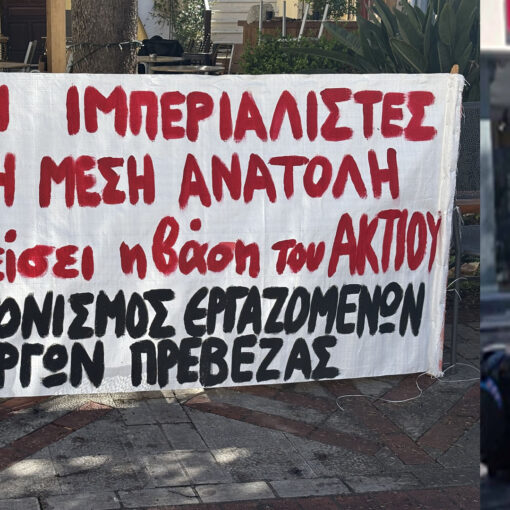 Ι ΙΜΠΕΡΙΑΛΙΣΤΕΣ
Η ΜΕΣΗ ΑΝΑΤΟΛΗ
είσει η βάση του ΑΚΤΙΟΥ
ΟΝΙΣΜΟΣ ΕΡΓΑΖΟΜΕΝΩΝ
ΡΓΩΝ ΠΡΕΒΕΖΑΣ